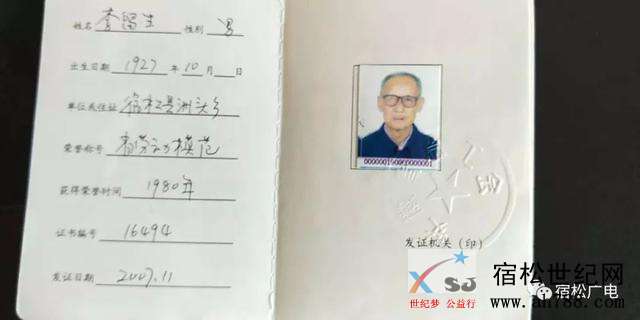 姓名 李留生 性别 男
出生日期 1927 年 10 月 日
单位或住址 宿松县洲头乡
荣誉称号 省劳动模范
获得荣誉时间 1980年
证书编号 16494
发证日期 2007.11
发证机关（印）
XSJ
世纪梦 公益行
宿松世纪网
www.ah788.com
宿松广电